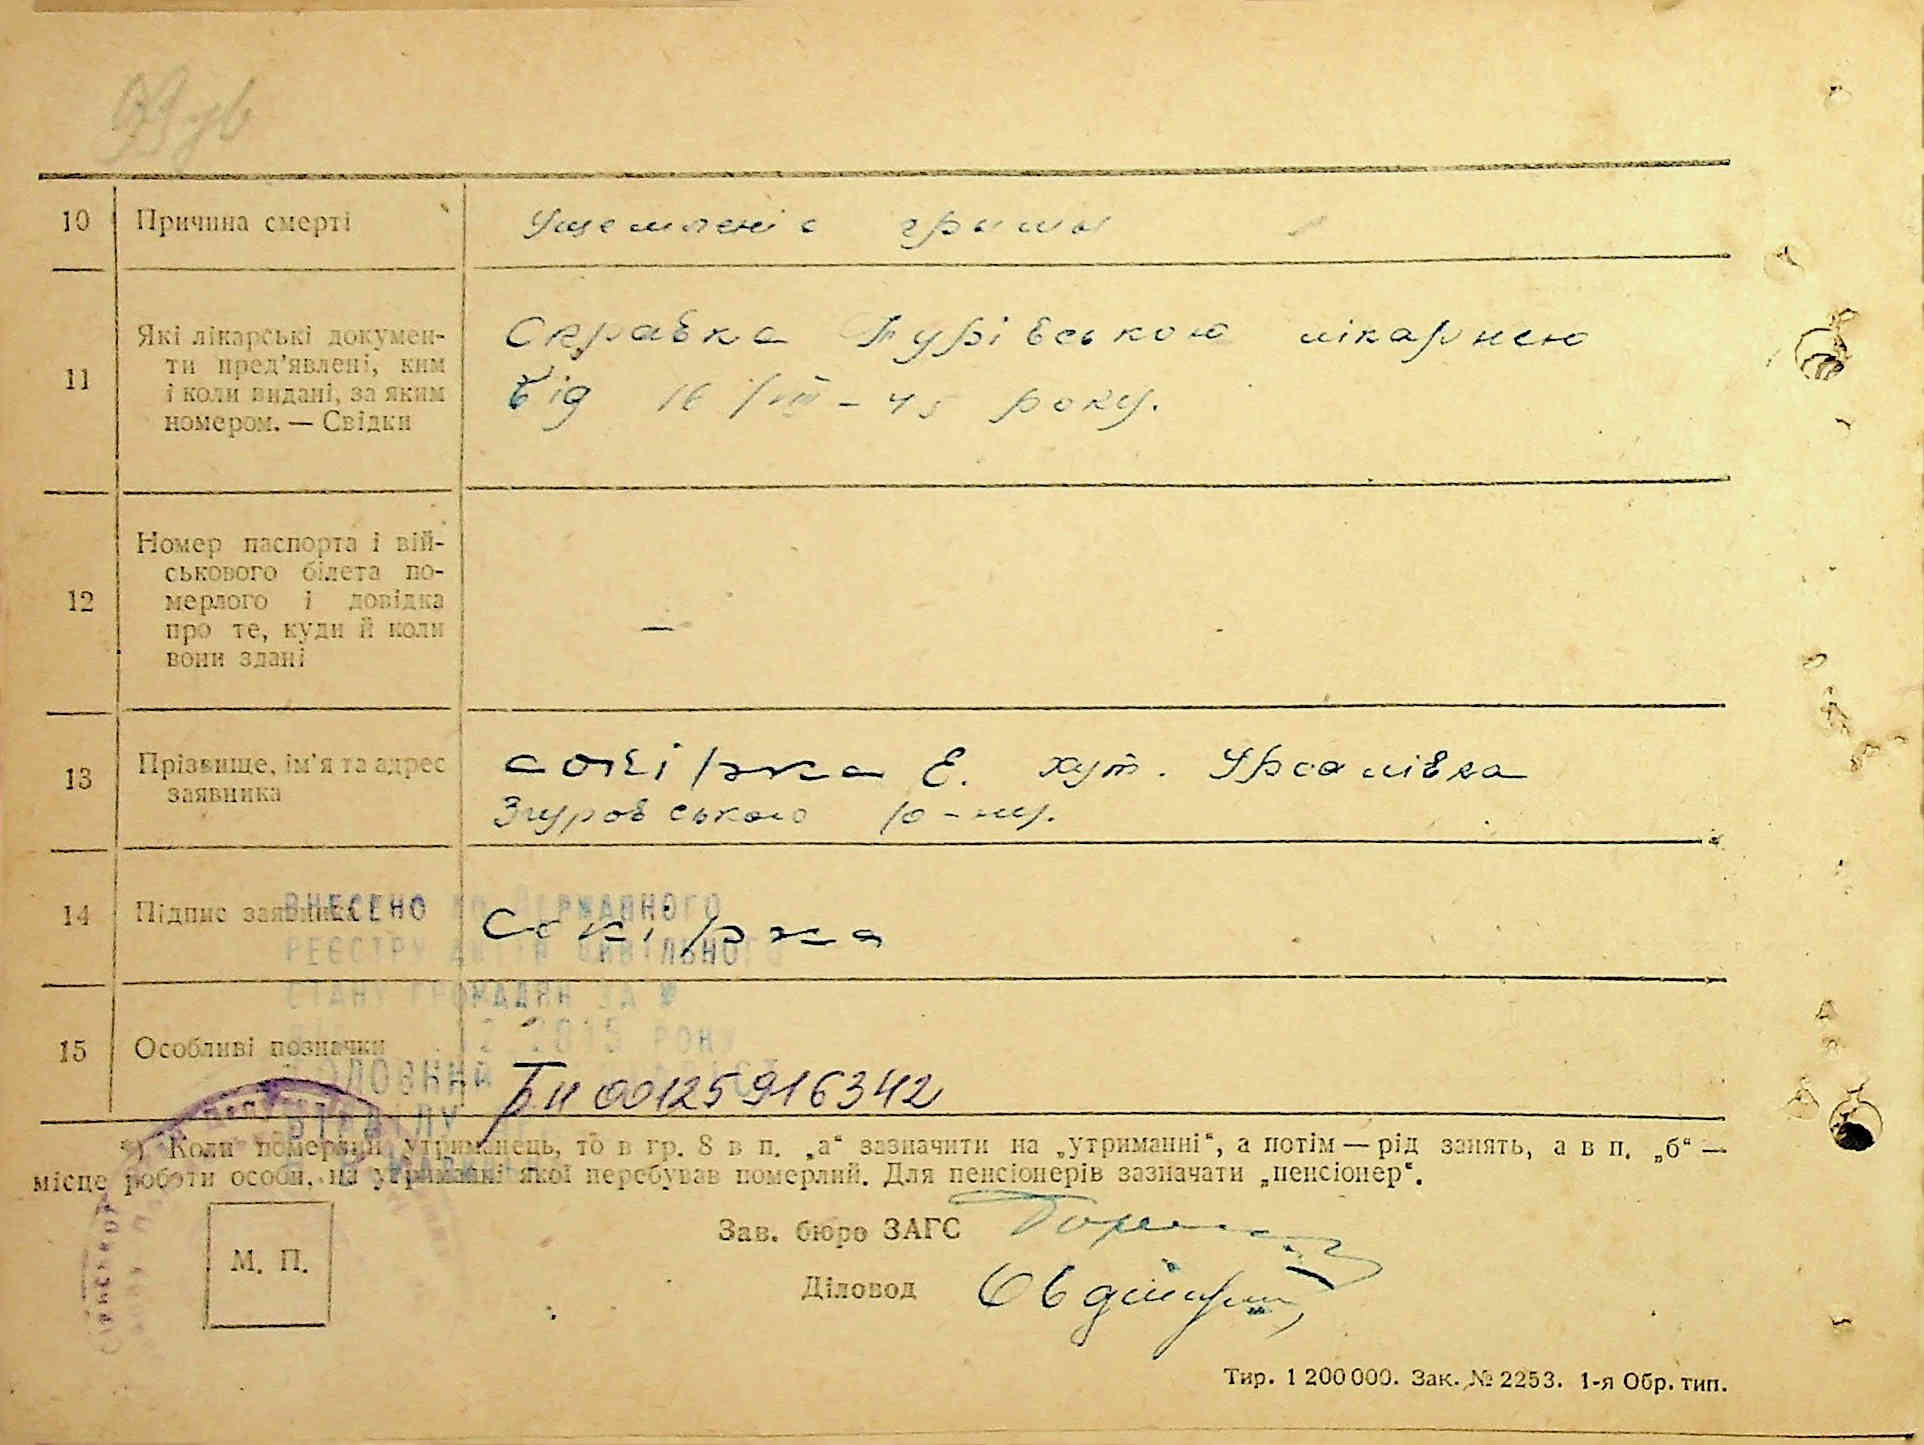 10 Причина смерті Ущемленіе грижы
11 Які лікарські докумен-
ти пред'явлені, ким
і коли видані, за яким
номером. — Свідки
Справка Турівською лікарнею
від 16/III-45 року.
12 Номер паспорта і вій-
ськового білета по-
мерлого і довідка
про те, куди й коли
вони здані
—
13 Прізвище, ім'я та адрес
заявника
Сокірка Е. хут.
Згуровського р-ну.
14 Підпис заявника Сокірка
ВНЕСЕНО ДО ДЕРЖАВНОГО
РЕЄСТРУ АКТІВ ЦИВІЛЬНОГО
СТАНУ ГРОМАДЯН ЗА №
2015 РОКУ
15 Особливі позначки
ГОЛОВНИЙ
ВІДДІЛУ
00125916342
*) Коли померлий утриманець, то в гр. 8 в п. „а“ зазначити на „утриманні“, а потім — рід занять, а в п. „б“ —
місце роботи особи, на утриманні якої перебував померлий. Для пенсіонерів зазначати „пенсіонер“.
М. П.
Зав. бюро ЗАГС
Діловод
Тир. 1 200 000. Зак. № 2253. 1-я Обр. тип.